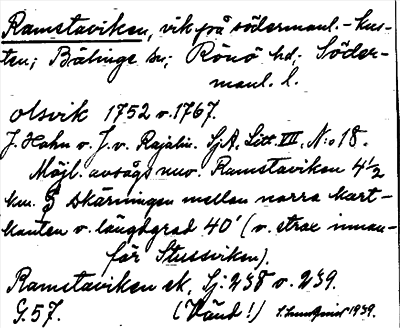 Ramstaviken, vik på södermanl.-kus-
ten; Bälinge sn; Rönö hd; Söder-
manl. l.
olsvik 1752 v. 1767.
J. Hahn v. J. v. Rajalin. SjA, Litt. VIII, N:o 18.
Möjl. avsågs nuv. Ramstaviken 4½
km. S skärningen mellan norra kart-
kanten v. längdgrad 40' (v. strax innan-
för Stussviken).
Ramstaviken ek, Sj: 238 v. 239.
G. 57. (Vänd!) S. Lundqvist 1939.